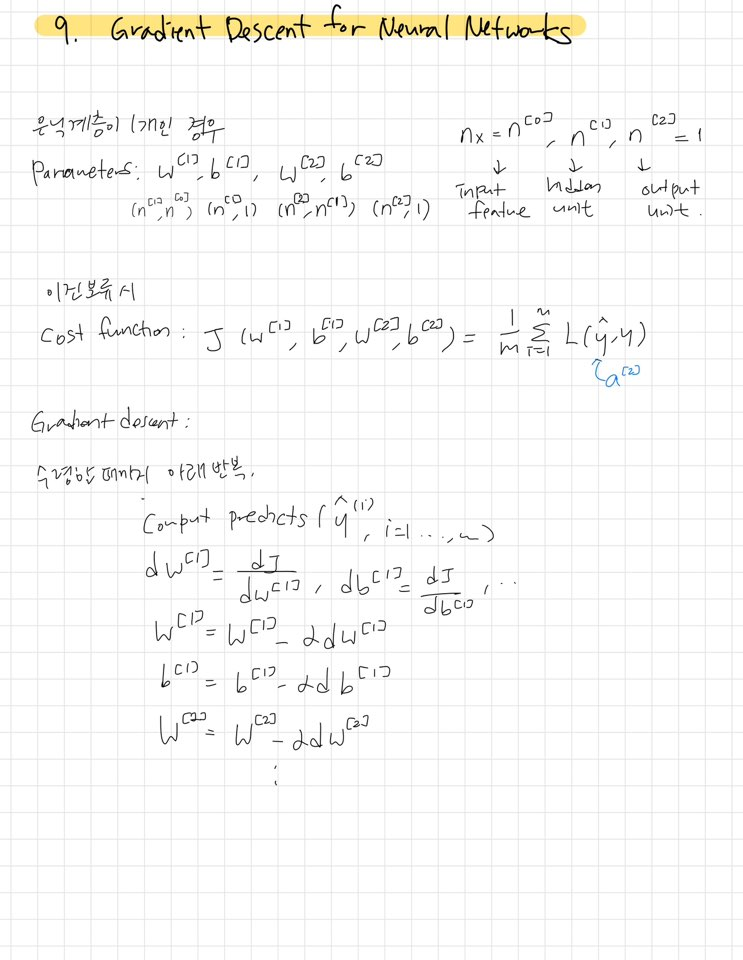 9. Gradient Descent for Neural Networks
은닉계층이 1개인 경우
Parameters: W^[1], b^[1], W^[2], b^[2]
(n^[1], n^[0]) (n^[1], 1) (n^[2], n^[1]) (n^[2], 1)
nx = n^[0], n^[1], n^[2] = 1
↓ ↓ ↓
input feature hidden unit output unit.
이진분류시
Cost function: J (W^[1], b^[1], W^[2], b^[2]) = 1/m Σ_{i=1}^{n} L(ŷ, y)
a^[2]
Gradient descent:
수렴할때까지 아래 반복.
Comput predicts (ŷ^(i), i=1 ..., m)
dW^[1] = dJ/dW^[1], db^[1] = dJ/db^[1], ...
W^[1] = W^[1] - αdW^[1]
b^[1] = b^[1] - αdb^[1]
W^[2] = W^[2] - αdW^[2]
⋮